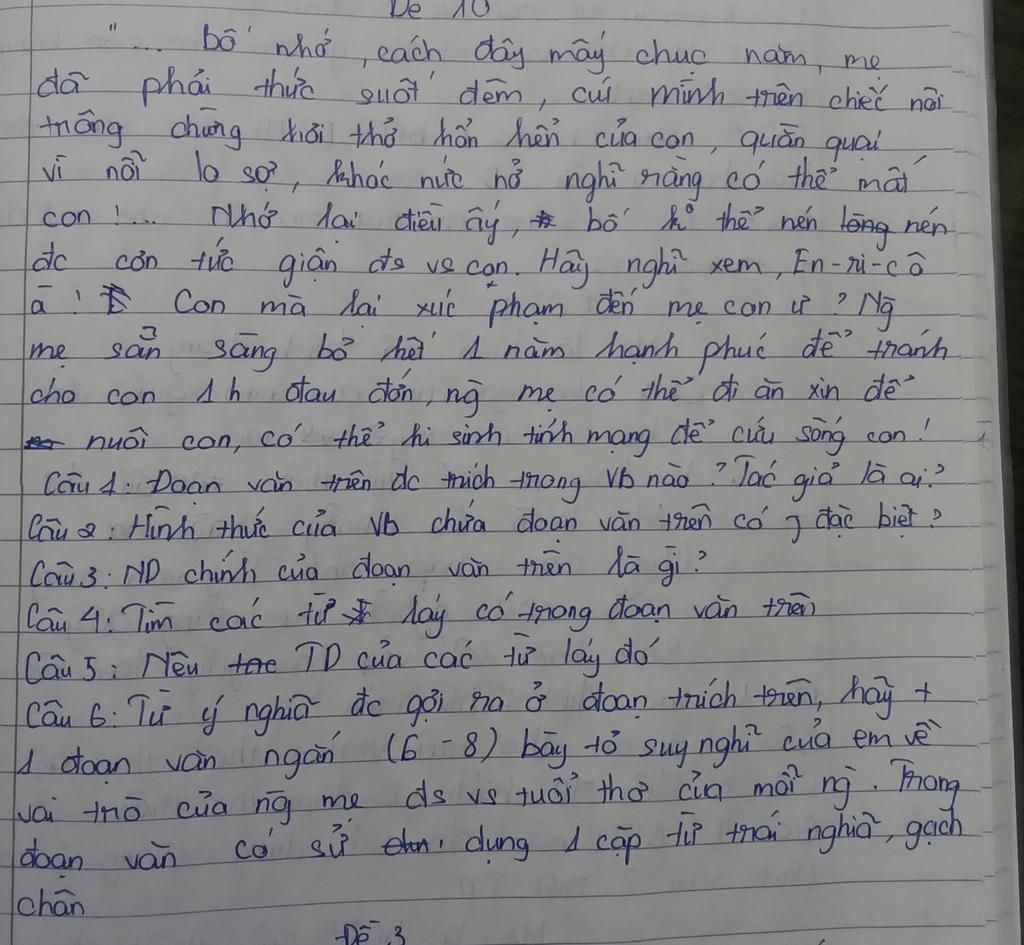 Đề 10
"... bố nhớ, cách đây mấy chục năm, mẹ
đã phải thức suốt đêm, cúi mình trên chiếc nôi
trông chừng hơi thở hổn hển của con, quằn quại
vì nỗi lo sợ, khóc nức nở nghĩ rằng có thể mất
con !... Nhớ lại điều ấy, bố ko thể nén lòng nén
đc cơn tức giận đs vs con. Hãy nghĩ xem, En-ri-cô
à ! Con mà lại xúc phạm đến mẹ con ư ? Ng
mẹ sẵn sàng bỏ hết 1 năm hạnh phúc để tránh
cho con 1 h đau đớn, ng mẹ có thể đi ăn xin để
nuôi con, có thể hi sinh tính mạng để cứu sống con !
Câu 1: Đoạn văn trên đc trích trong Vb nào ? Tác giả là ai ?
Câu 2: Hình thức của Vb chứa đoạn văn trên có j đặc biệt ?
Câu 3: ND chính của đoạn văn trên là gì ?
Câu 4: Tìm các từ láy có trong đoạn văn trên
Câu 5: Nêu TD của các từ láy đó
Câu 6: Từ ý nghĩa đc gợi ra ở đoạn trích trên, hãy +
1 đoạn văn ngắn (6 - 8) bày tỏ suy nghĩ của em về
vai trò của ng mẹ đs vs tuổi thơ của mỗi ng. Trong
đoạn văn có sử dụng 1 cặp từ trái nghĩa, gạch
chân
Đề 3